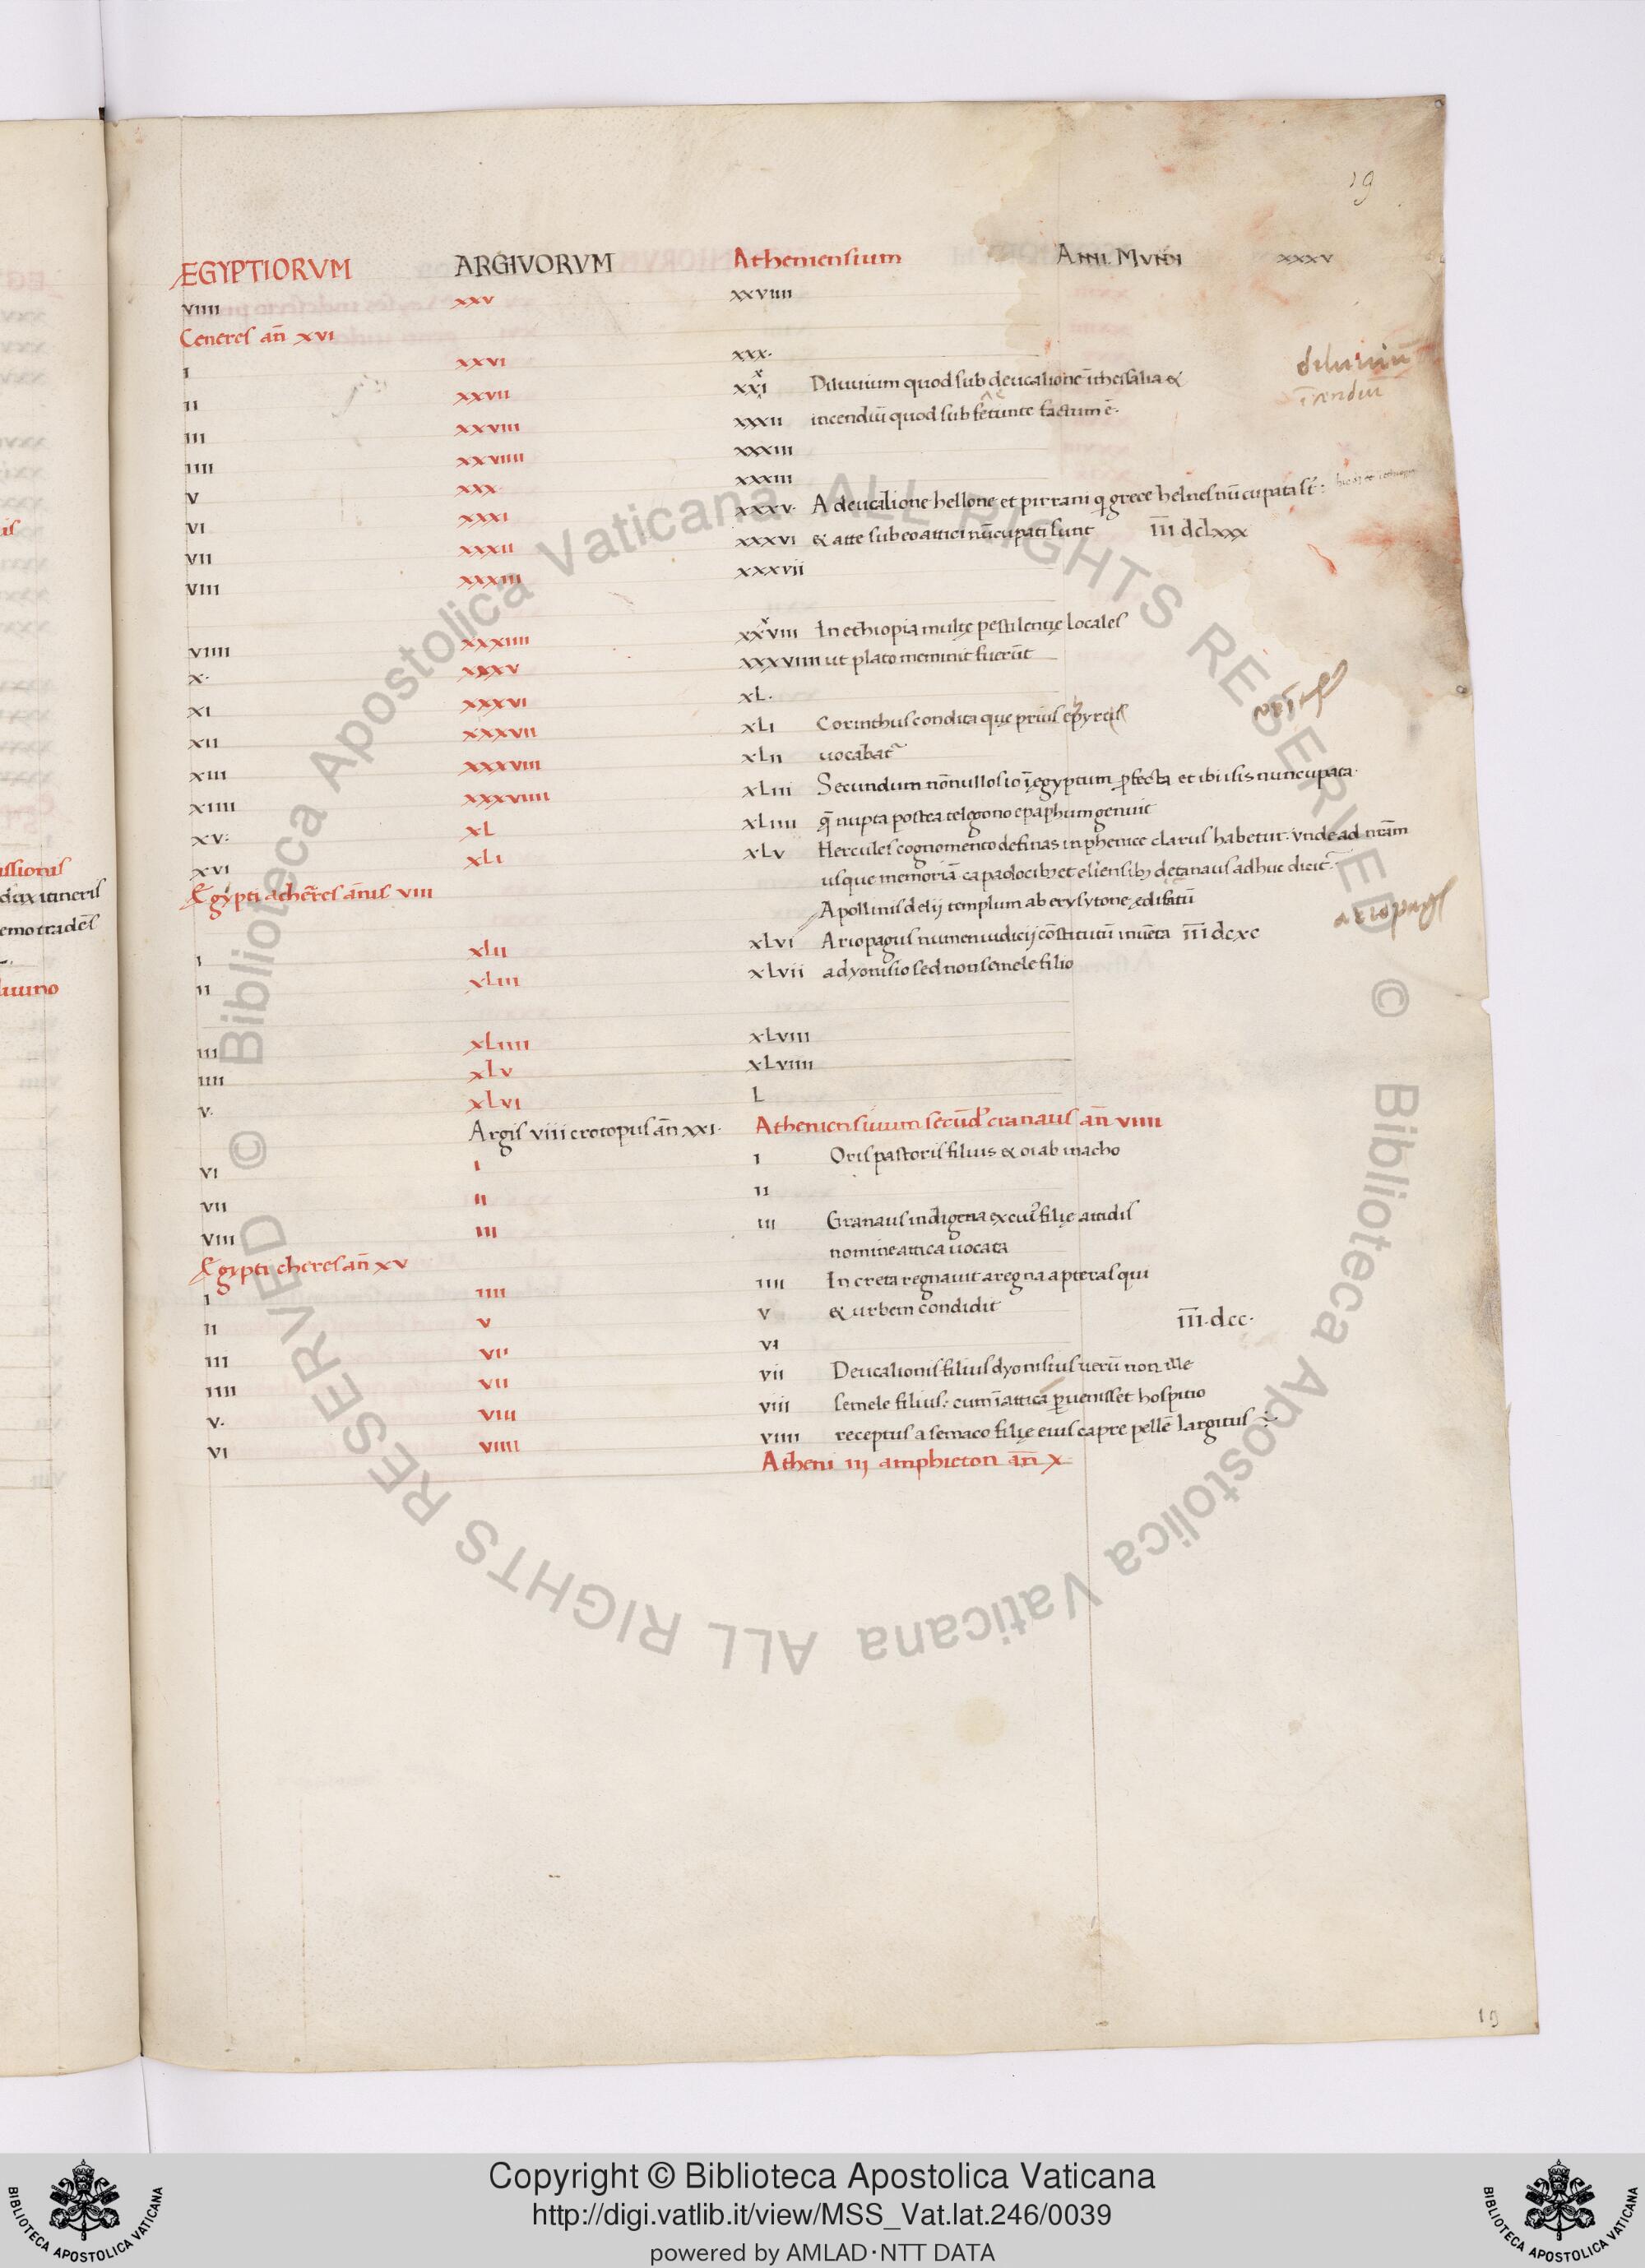 19
ÆGYPTIORVM ARGIVORVM Atheniensium Anni. Mundi xxxv
viiii xxv xxviiii
Ceneres an̄ xvi
i xxvi xxx.
ii xxvii xxxi Diluuium quod sub deucalione ī thessalia &
iii xxviii xxxii incendiū quod sub fetunte factum ē.
iiii xxviiii xxxiii
v xxx xxxiii
vi xxxi xxxv. A deucalione hellone et pirrani q grece helnes nūcupata st̄:
vii xxxii xxxvi & atte sub eo attici nūcupati sunt īīī dclxxx
viii xxxiii xxxvii
diluuiū
īcendiū
viiii xxxiiii xxxviii In ethiopia multę pestilentię locales
x. xxxv xxxviiii ut plato meminit fuerūt
xi xxxvi xL.
xii xxxvii xLi Corinthus condita quę prius epyres
xiii xxxviii xLii uocabat᷑
xiiii xxxviiii xLiii Secundum nōnullos io ī ęgyptum ꝓfecta et ibi isis nuncupata.
xv: xL xLiiii q̄ nupta postea telegono epaphum genuit
xvi xLi xLv Hercules cognomento desinas in phenice clarus habetur. vnde ad nr̄am
Ægypti acheres annis viii usque memoriā capadocib; et eliensib; detanaus adhuc dicit᷑.
Apollinis delij templum ab erysytone ędifatū
i xLii xLvi Ariopagus numen iudicij cōstitutū inuēta īīī dcxc
ariopagus
ii xLiii xLvii a dyonisio sed non semele filio
iii xLiiii xLviii
iiii xLv xLviiii
v. xLvi L
Argis viii crotopus an̄ xxi. Atheniensiuum secūd' cranaus an̄ viiii
vi i i Oris pastoris filius & oi ab inacho
vii ii ii
viii iii iii Granaus indigena ex cui' filię attidis
nomine attica uocata
Ægypti cheres an̄ xv
i iiii iiii In creta regnauit a regna apteras qui
ii v v & urbem condidit īīī.dcc.
iii vii vi
iiii vii vii Deucalionis filius dyonisius uerū non ille
v. viii viii semele filius: cum ī attica ꝑuenisset hospitio
vi viiii viiii receptus a semaco filię eius capre pellē largitus ÷.
Atheni iij amphicton an̄ x
19
Copyright © Biblioteca Apostolica Vaticana
http://digi.vatlib.it/view/MSS_Vat.lat.246/0039
powered by AMLAD·NTT DATA
BIBLIOTECA APOSTOLICA VATICANA
BIBLIOTECA APOSTOLICA VATICANA
© Biblioteca Apostolica Vaticana ALL RIGHTS RESERVED © Biblioteca Apostolica Vaticana ALL RIGHTS RESERVED